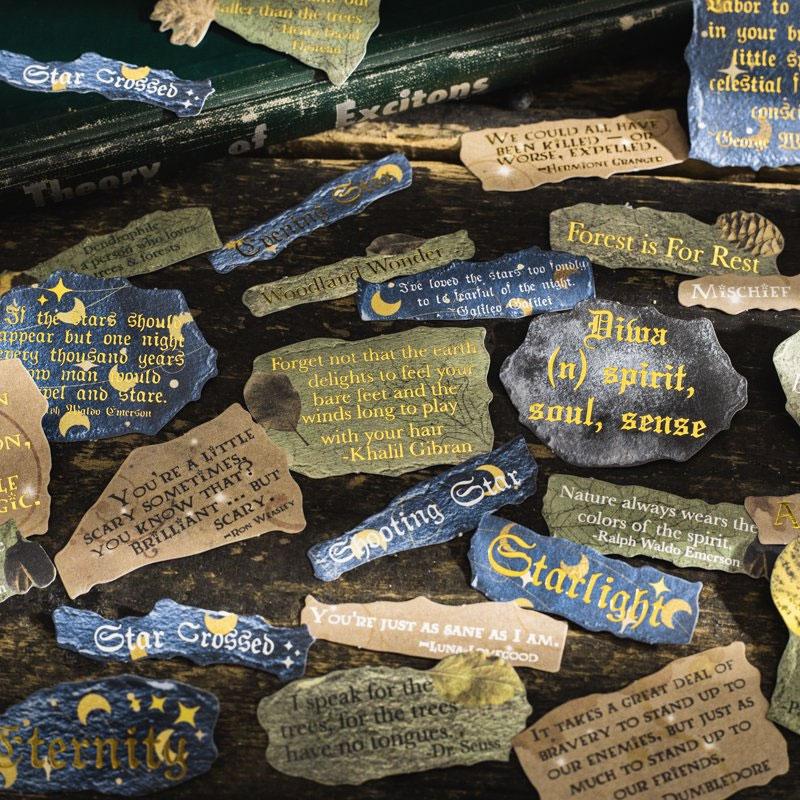 taller than the trees
Henry David
Thoreau
Star Crossed
Theory of Excitons
Labor to
in your br
little sp
celestial f
consci
George W
We could all have
been killed - or
worse, expelled.
~Hermione Granger
Evening Star
Dendrophile
a person who loves
trees & forests
Forest is For Rest
Woodland Wonder
I've loved the stars too fondly
to be fearful of the night.
~Galileo Galilei
Mischief
If the stars should
appear but one night
every thousand years
how man would
marvel and stare.
Ralph Waldo Emerson
Diwa
(n) spirit,
soul, sense
Forget not that the earth
delights to feel your
bare feet and the
winds long to play
with your hair
-Khalil Gibran
You're a little
scary sometimes,
you know that?
Brilliant ... but
scary.
~Ron Weasley
Shooting Star
Nature always wears the
colors of the spirit
-Ralph Waldo Emerson
Starlight
Star Crossed
You're just as sane as I am.
~Luna Lovegood
Eternity
I speak for the
trees, for the trees
have no tongues.
-Dr. Seuss
It takes a great deal of
bravery to stand up to
our enemies, but just as
much to stand up to
our friends.
Dumbledore